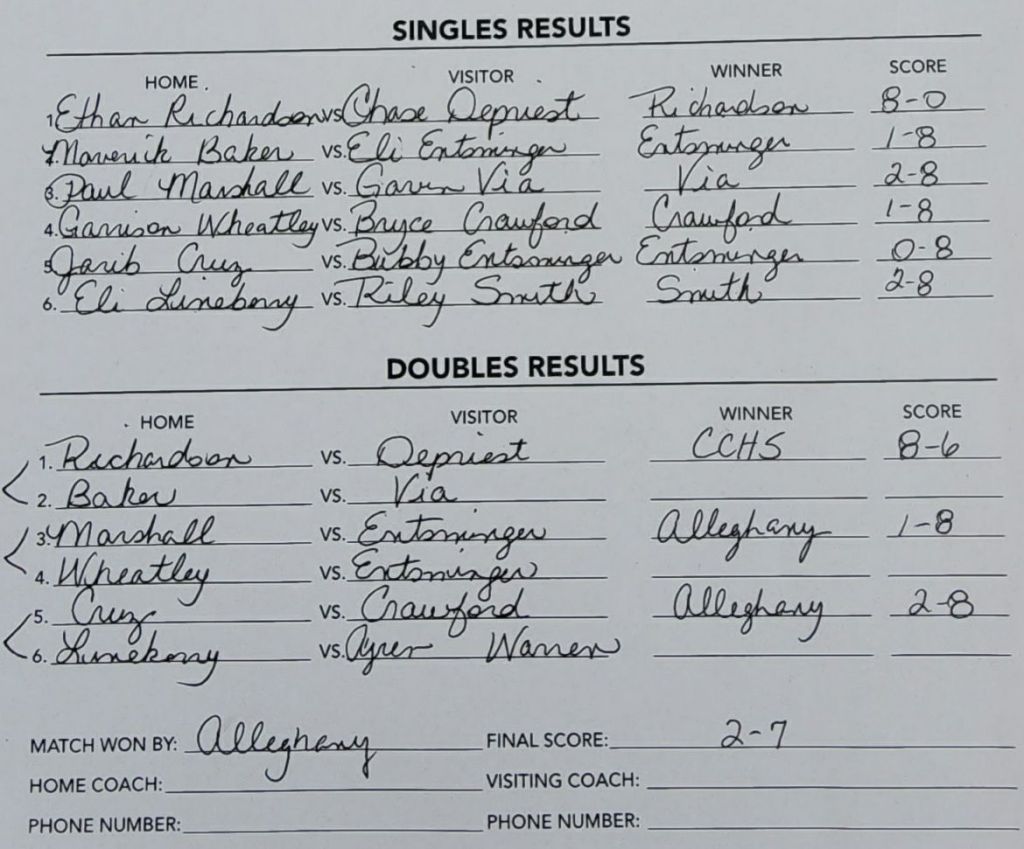 SINGLES RESULTS
HOME VISITOR WINNER SCORE
1. Ethan Richardson vs. Chase Depriest Richardson 8-0
2. Maverick Baker vs. Eli Entsminger Entsminger 1-8
3. Paul Marshall vs. Gaven Via Via 2-8
4. Garrison Wheatley vs. Bryce Crawford Crawford 1-8
5. Jarib Cruz vs. Bubby Entsminger Entsminger 0-8
6. Eli Lineberry vs. Riley Smith Smith 2-8
DOUBLES RESULTS
HOME VISITOR WINNER SCORE
1. Richardson vs. Depriest CCHS 8-6
2. Baker vs. Via
3. Marshall vs. Entsminger Alleghany 1-8
4. Wheatley vs. Entsminger
5. Cruz vs. Crawford Alleghany 2-8
6. Lineberry vs. Warren
MATCH WON BY: Alleghany FINAL SCORE: 2-7
HOME COACH: VISITING COACH:
PHONE NUMBER: PHONE NUMBER: